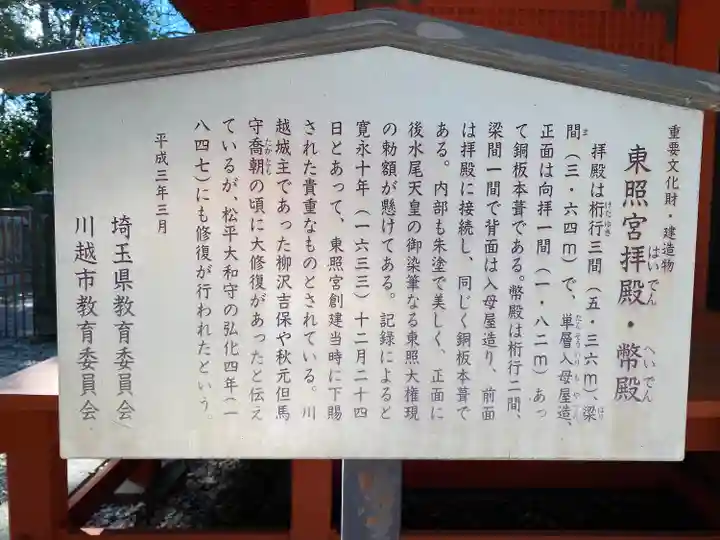 重要文化財・建造物
東照宮拝殿・幣殿
はいでん
へいでん
拝殿は桁行三間（五・三六ｍ）、梁
けたゆき
はり
間（三・六四ｍ）で、単層入母屋造、
ま
たんそういりもやづくり
正面は向拝一間（一・八二ｍ）あっ
て銅板本葺である。幣殿は桁行二間、
梁間一間で背面は入母屋造り、前面
は拝殿に接続し、同じく銅板本葺で
ある。内部も朱塗で美しく、正面に
後水尾天皇の御染筆なる東照大権現
の勅額が懸けてある。記録によると
寛永十年（一六三三）十二月二十四
日とあって、東照宮創建当時に下賜
された貴重なものとされている。川
越城主であった柳沢吉保や秋元但馬
守喬朝の頃に大修復があったと伝え
たかとも
ているが、松平大和守の弘化四年（一
八四七）にも修復が行われたという。
平成三年三月
埼玉県教育委員会
川越市教育委員会